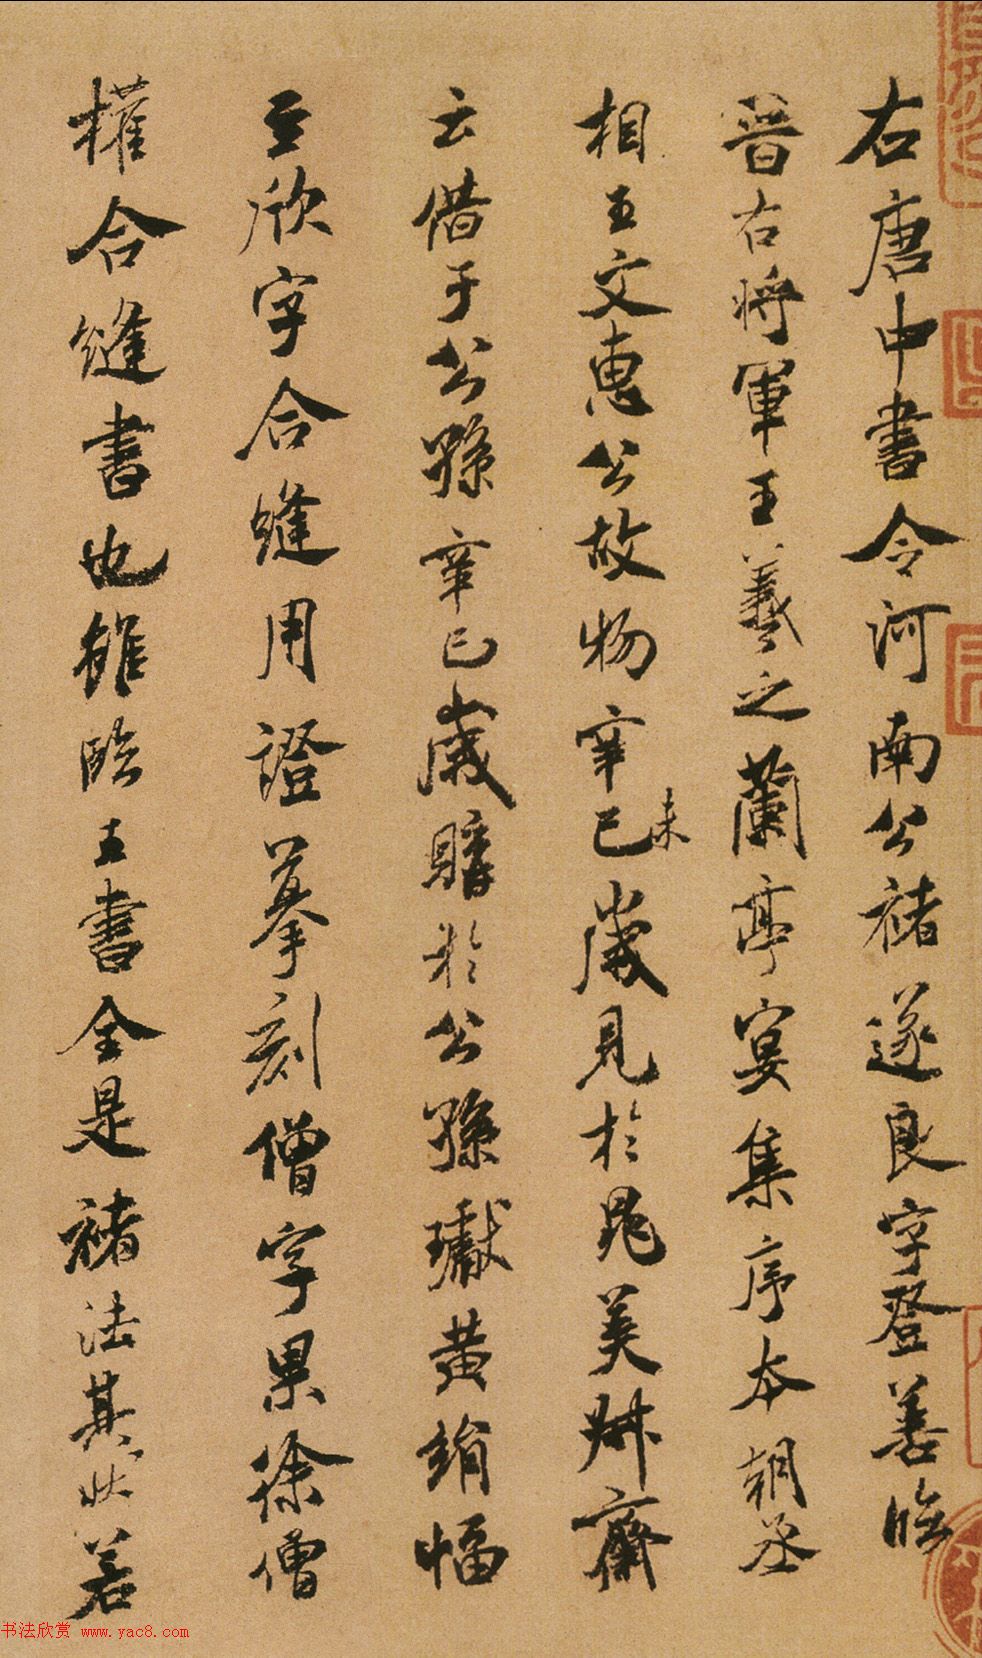 右唐中書令河南公褚遂良字登善臨
晉右將軍王羲之蘭亭宴集序本朝丞
相王文惠公故物辛巳未歲見於晁美叔齋
云借于公孫辛巳歲購於公孫瓛黃絹幅
至欣字合縫用證摹刻僧字果徐僧
權合縫書也雖臨王書全是褚法其狀若
书法欣赏 www.yac8.com